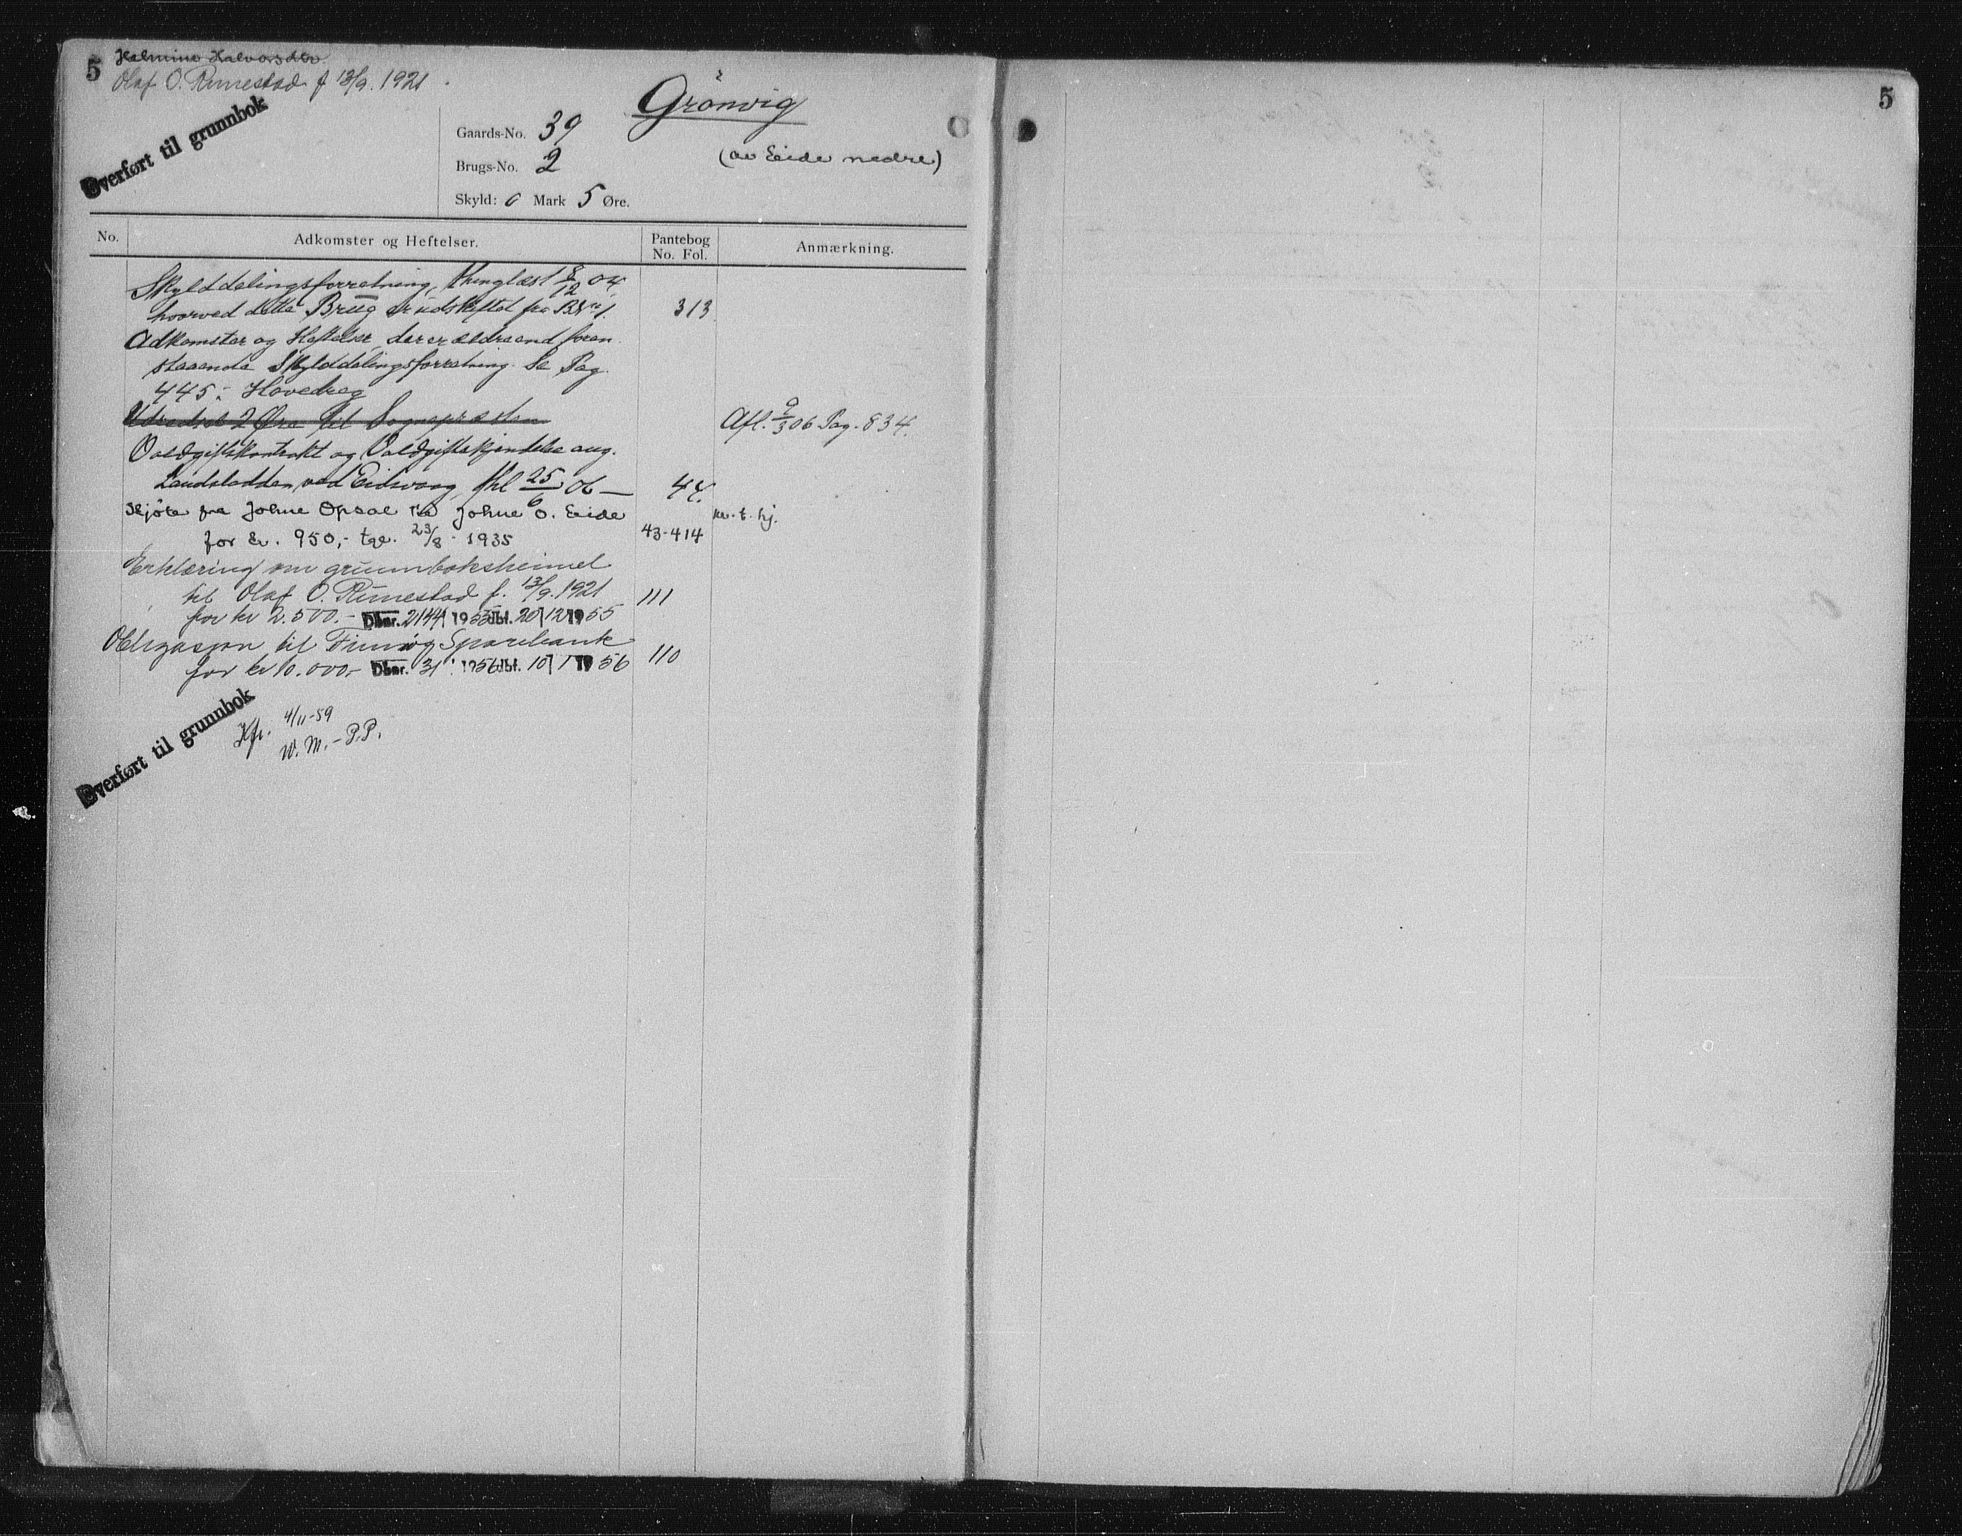 5 Helmine Halvorsdtr.
Olaf O. Rimestad f 13/9. 1921
Overført til grunnbok
Grönvig
(av Eide nedre)
Gaards-No. 39
Brugs-No. 2
Skyld: 0 Mark 5 Øre.
No. Adkomster og Heftelser. Pantebog No. Fol. Anmærkning.
Skylddelingsforretning, thinglæst 8/12 04,
hvorved dette Brug er udskiftet fra BNr 1. 313
Adkomster og Heftelser, der er ældre end foran
staaende Skylddelingsforretning. Se Pag.
445: Hovedreg
Udredsel 2 Øre til Sognepræsten Afl. 9/3 06 Pag. 834.
Voldgiftskontrakt og Voldgiftskjendelse ang.
Landsladden ved Eidsvaag, thl 25/6 06 — 44.
Skjöte fra Johne Opsal til Johne O. Eide
for kr. 950,- tgl. 23/8 - 1935 43-414
Erklæring om grunnboksheimel
til Olaf O. Rimestad f. 13/9. 1921 111
for kr 2.500.- Dbnr. 2144 1955 dbf. 20/12 1955
Obligasjon til Finnøy Sparebank
for kr 10.000,- Dbnr. 31 1956 dbf. 10/1 1956 110
Overført til grunnbok
Kfr. 4/11-59
W. M. - P.P.
5